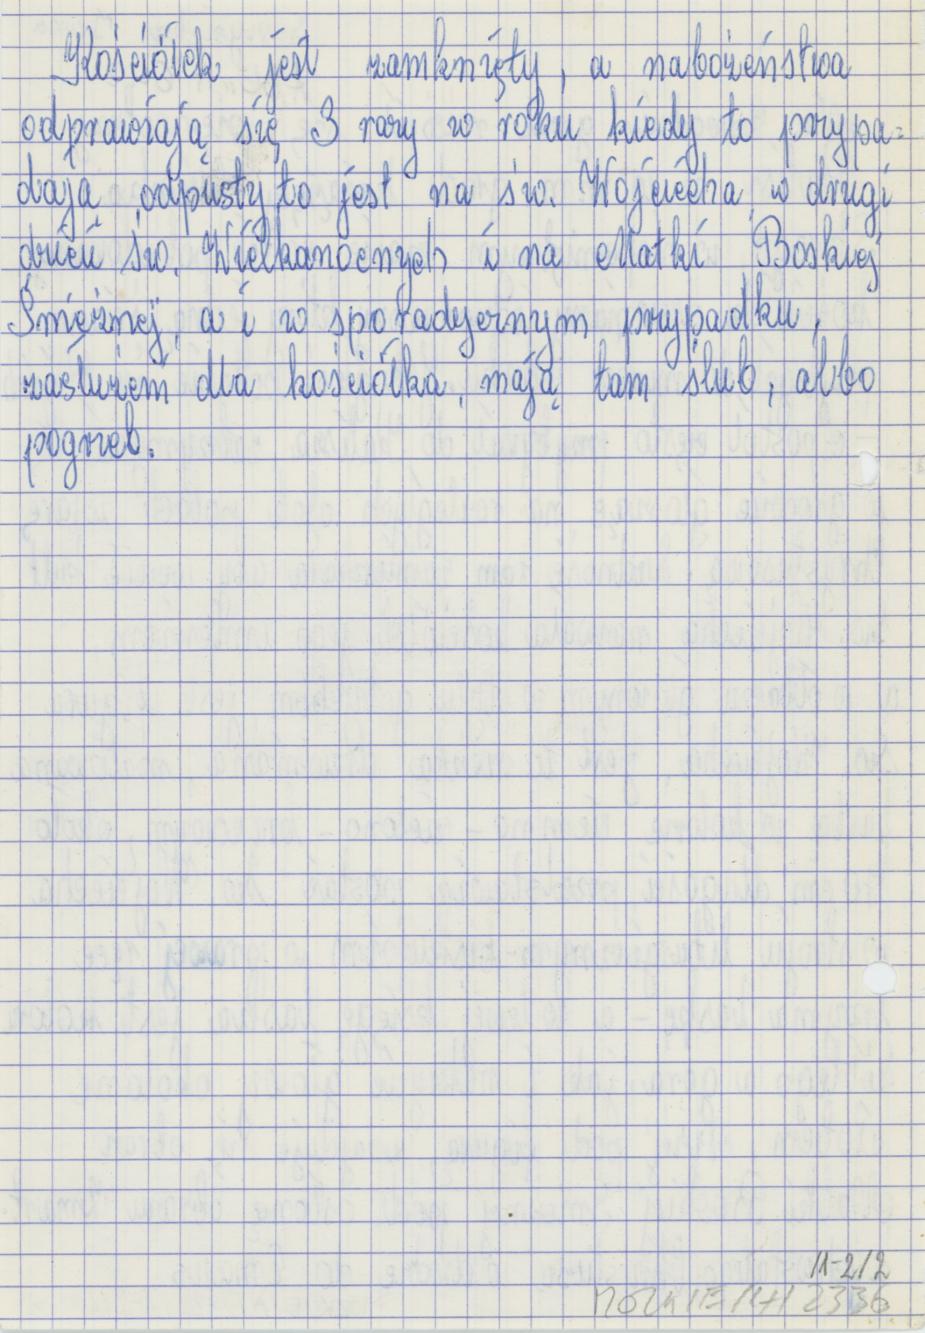 Kościółek jest zamknięty, a nabożeństwa
odprawiają się 3 razy w roku kiedy to przypa=
dają odpusty to jest na św. Wojciecha, w drugi
dzień św. Wielkanocnych i na Matki Boskiej
Śnieżnej, a i w sporadycznym przypadku,
zasłużeni dla kościółka, mają tam ślub, albo
pogrzeb.
11-2/2